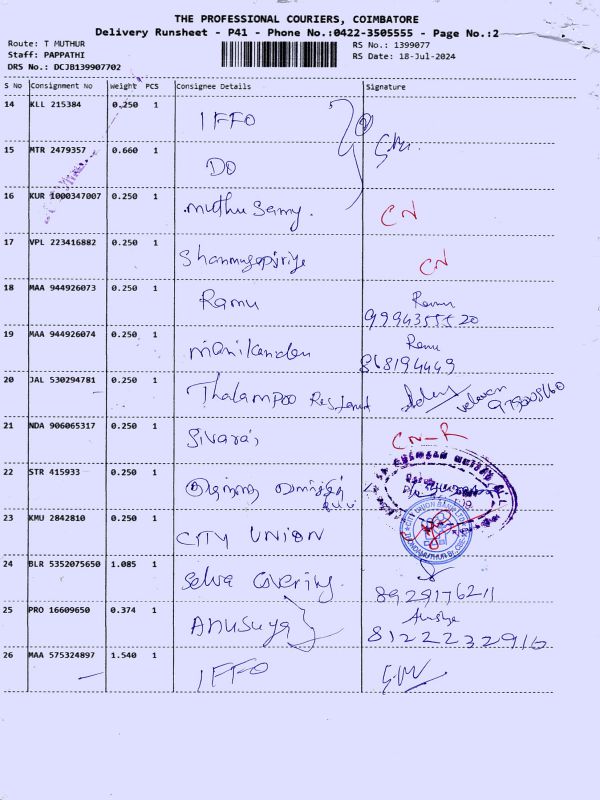 THE PROFESSIONAL COURIERS, COIMBATORE
Delivery Runsheet - P41 - Phone No.:0422-3505555 - Page No.:2
Route: T MUTHUR
RS No.: 1399077
Staff: PAPPATHI
RS Date: 18-Jul-2024
DRS No.: DCJB139907702
S No Consignment No Weight PCS Consignee Details Signature
14 KLL 215384 0.250 1 IFFO
15 MTR 2479357 0.660 1 DO
16 KUR 1000347007 0.250 1 muthu Samy. CN
17 VPL 223416882 0.250 1 Shanmugapriya CN
18 MAA 944926073 0.250 1 Ramu Ramu
9994355520
19 MAA 944926074 0.250 1 manikandan Ramu
868194449
20 JAL 530294781 0.250 1 Thalampoo
21 NDA 906065317 0.250 1 Sivaraj CN-R
22 STR 415933 0.250 1
23 KMU 2842810 0.250 1 CITY UNION
CITY UNION BANK LTD
24 BLR 5352075650 1.085 1 Selva Covering.
8929176211
25 PRO 16609650 0.374 1 ANUSUYA
8122232910
26 MAA 575324897 1.540 1 IFFO